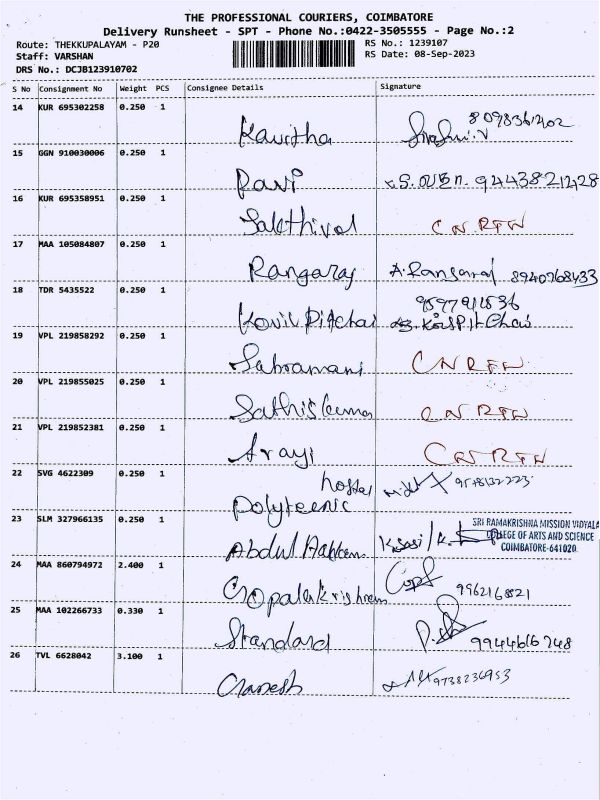 THE PROFESSIONAL COURIERS, COIMBATORE
Delivery Runsheet - SPT - Phone No.:0422-3505555 - Page No.:2
Route: THEKKUPALAYAM - P20
RS No.: 1239107
Staff: VARSHAN
RS Date: 08-Sep-2023
DRS No.: DCJB123910702
S No Consignment No Weight PCS Consignee Details Signature
14 KUR 695302258 0.250 1 Kavitha
15 GGN 910030006 0.250 1 Ravi
16 KUR 695358951 0.250 1 Sakthivel
17 MAA 105084807 0.250 1 Rangaraj A. Rangaraj 8940768433
18 TDR 5435522 0.250 1 Kovil Pitchai
19 VPL 219858292 0.250 1 Subramani
20 VPL 219855025 0.250 1 Sathiskumar
21 VPL 219852381 0.250 1 Arayi
22 SVG 4622309 0.250 1 Polyteenic hostel
23 SLM 327966135 0.250 1 Abdul Hakkem
SRI RAMAKRISHNA MISSION VIDYALA
COLLEGE OF ARTS AND SCIENCE
COIMBATORE-641020.
24 MAA 860794972 2.400 1 Gopalakrishnan
25 MAA 102266733 0.330 1 Standard 9944616748
26 TVL 6628042 3.100 1 Ganesh 9738236953